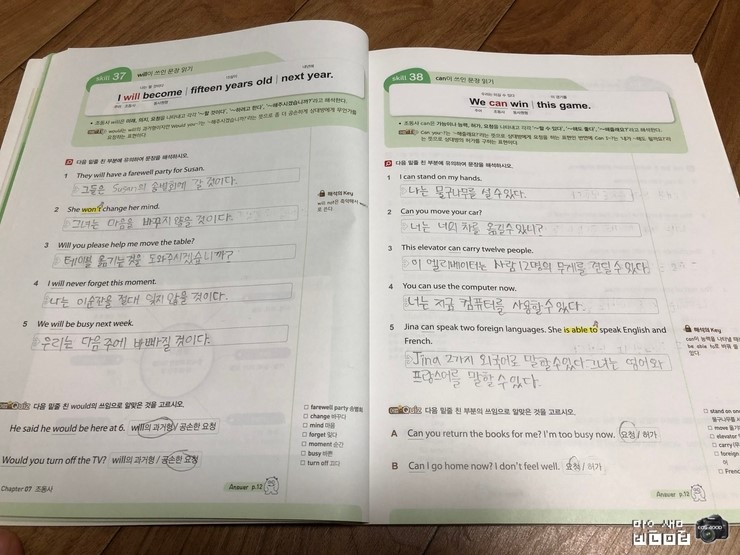 Skill 37 will이 쓰인 문장 읽기
I will become | fifteen years old | next year.
주어 조동사 동사원형
• 조동사 will은 미래, 의지, 요청을 나타내고 각각 '~할 것이다', '~하려고 한다', '~해주시겠습니까?'라고 해석한다.
다음 밑줄 친 부분에 유의하여 문장을 해석하시오.
1 They will have a farewell party for Susan.
그들은 Susan의 송별회에 갈 것이다.
2 She won't change her mind.
그녀는 마음을 바꾸지 않을 것이다.
3 Will you please help me move the table?
테이블 옮기는것을 도와주시겠습니까?
4 I will never forget this moment.
나는 이순간을 절대 잊지 않을 것이다.
5 We will be busy next week.
우리는 다음주에 바빠질 것이다.
해석의 Key
will not은 축약해서
로 쓴다.
Quiz 다음 밑줄 친 would의 쓰임으로 알맞은 것을 고르시오.
He said he would be here at 6. will의 과거형 / 공손한 요청
Would you turn off the TV? will의 과거형 / 공손한 요청
farewell party 송별회
change 바꾸다
mind 마음
forget 잊다
moment 순간
busy 바쁜
turn off 끄다
Chapter 07 조동사
Answer p.12
Skill 38 can이 쓰인 문장 읽기
우리는 이길 수 있다 이 경기를
We can win | this game.
주어 조동사 동사원형
• 조동사 can은 가능이나 능력, 허가, 요청을 나타내고 각각 '~할 수 있다', '~해도 좋다', '~해줄래요?'라고 해석한다.
다음 밑줄 친 부분에 유의하여 문장을 해석하시오.
1 I can stand on my hands.
나는 물구나무를 설 수 있다.
2 Can you move your car?
너는 너의 차를 옮길수 있니?
3 This elevator can carry twelve people.
이 엘리베이터는 사람 12명의 무게를 견딜 수 있다
4 You can use the computer now.
너는 지금 컴퓨터를 사용할 수 있다.
5 Jina can speak two foreign languages. She is able to speak English and
French.
Jina 2가지 외국어로 말할수있다 그녀는 영어와
프랑스어를 말할 수 있다.
해석의 Key
can이 능력을 나타낼 때
be able to로 바꿔 쓸
Quiz 다음 밑줄 친 부분의 쓰임으로 알맞은 것을 고르시오.
A Can you return the books for me? I'm too busy now. 요청 / 허가
B Can I go home now? I don't feel well. 요청 / 허가
stand on one
물구나무를 서
move 옮기
elevator
carry
foreign
French
Answer p.12